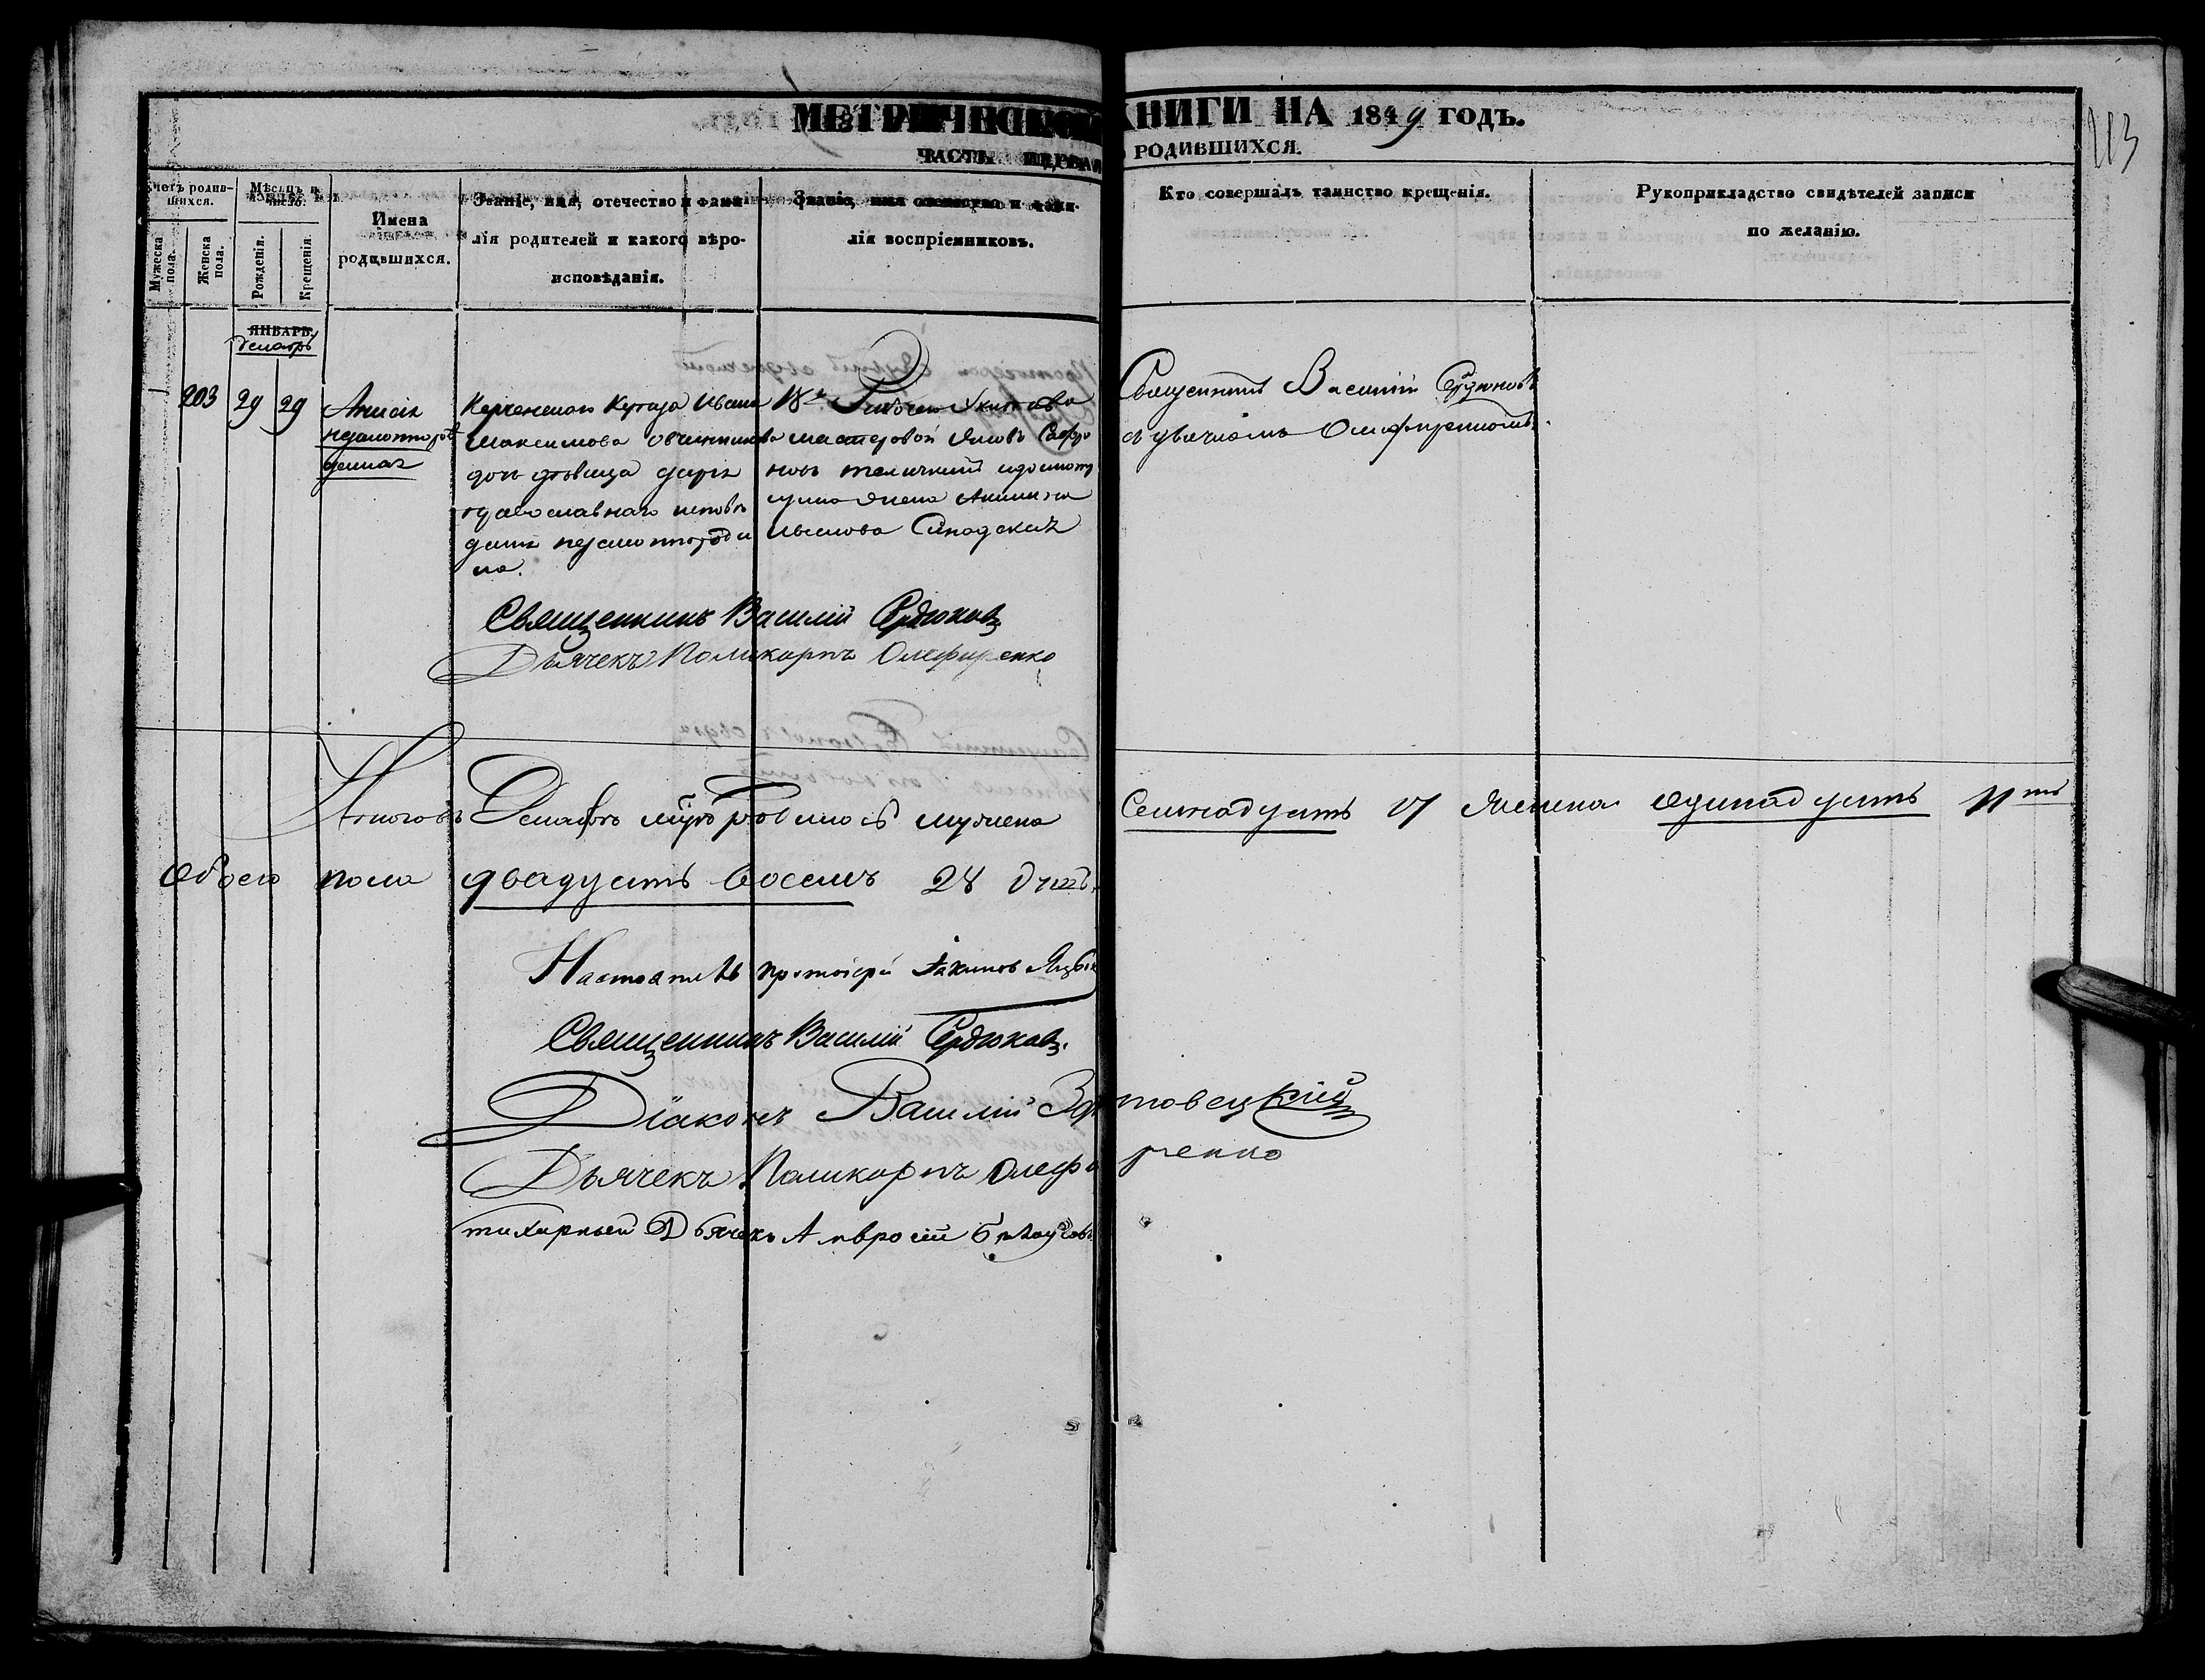 МЕТРИЧЕСКОЙ КНИГИ НА 1849 ГОДЪ.
113
ЧАСТЬ ПЕРВАЯ О РОДИВШИХСЯ.
Счетъ родив-
шихся.
Мѣсяцъ и
число.
Мужеска
пола.
Женска
пола.
Рожденія.
Крещенія.
Имена
родившихся.
Званіе, имя, отечество и фами-
лія родителей и какого вѣро-
исповѣданія.
Званіе, имя отечество и фами-
лія воспріемниковъ.
Кто совершалъ таинство крещенія.
Рукоприкладство свидѣтелей записи
по желанію.
ЯНВАРЬ
Декабрь
203 29 29
Анисія
незаконнорож
денная
Керченскаго Купца Ивана
Максимова Овчинникова
дочь дѣвица Дарія
православнаго исповѣ
данія незаконнороди
ла.
мастеровой Яковъ Сафро
новъ
Священникъ Василій Сердюковъ
съ дьячкомъ Олефиренкомъ.
Священникъ Василій Сердюковъ
Дьячекъ Поликарпъ Олефиренко
А всего въ Декабрѣ мцѣ родилось мужеска Семнадцать 17 женска одинадцать 11ть
обоего пола двадцать восемь 28 душъ.
Настоятель протоіерей
Священникъ Василій Сердюковъ.
Діаконъ Василій
Дьячекъ Поликарпъ Олефиренко
Дьячекъ Амвросій